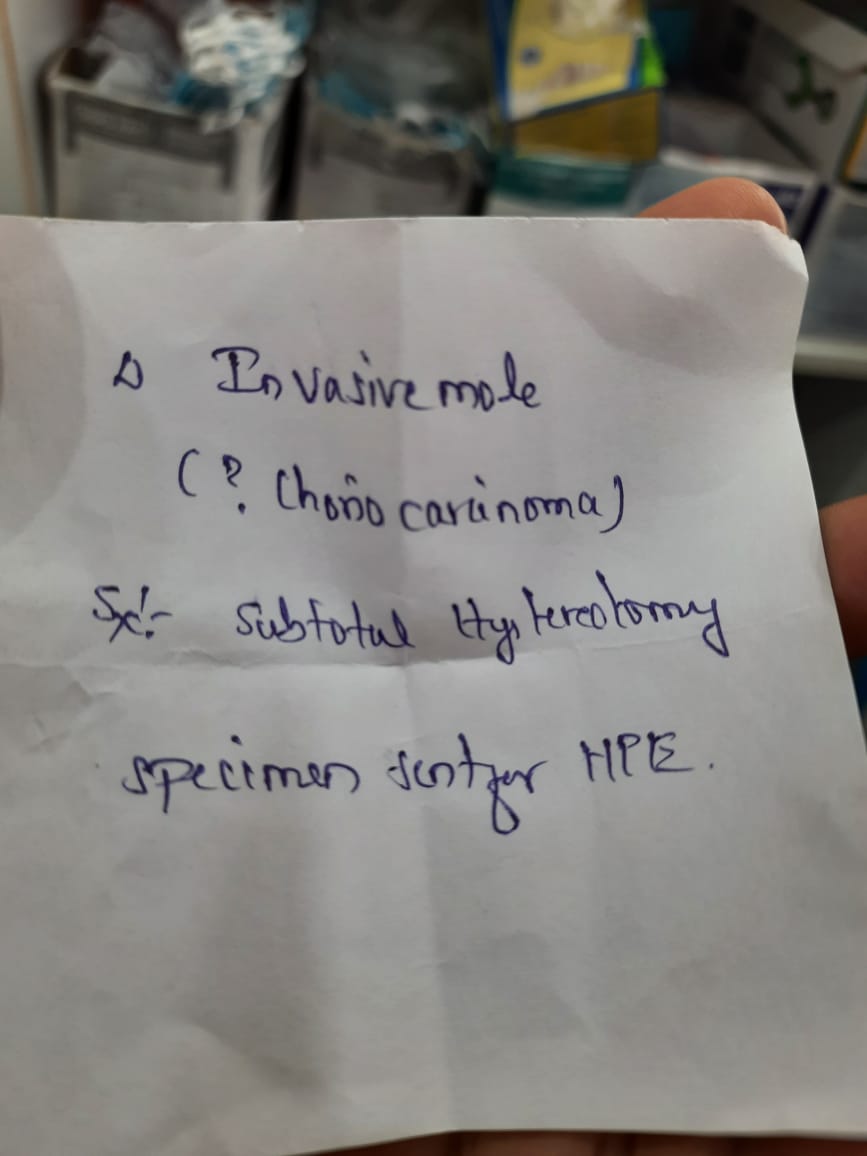 Δ Invasive mole
(? Choriocarcinoma)
Sx:- Subtotal Hysterectomy
specimen sent for HPE.